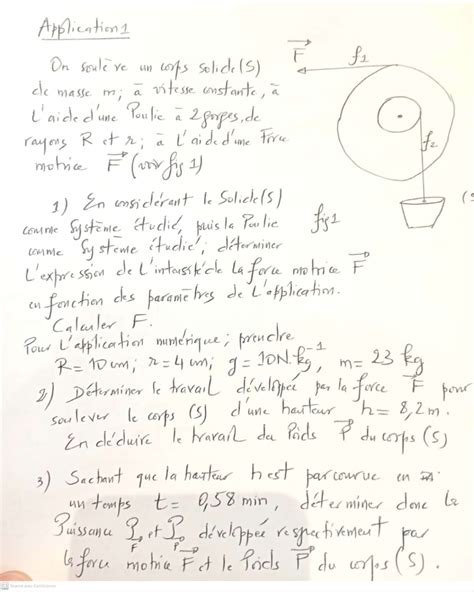 Application 1
On soulève un corps solide (S)
de masse m, à vitesse constante, à
l'aide d'une Poulie à 2 gorges, de
rayons R et r, à l'aide d'une Force
motrice F (voir fig 1)
F
f1
f2
(S
fig 1
1) En considérant le Solide (S)
comme Système étudié, puis la Poulie
comme Système étudié, déterminer
L'expression de L'intensité de la force motrice F
en fonction des paramètres de L'application.
Calculer F.
Pour L'application numérique, prendre
R = 10 cm; r = 4 cm; g = 10 N.kg⁻¹, m = 23 kg
2) Déterminer le travail développée par la force F pour
soulever le corps (S) d'une hauteur h = 8,2 m.
En déduire le travail du Poids P du corps (S)
3) Sachant que la hauteur h est parcourue en
un temps t = 0,58 min, déterminer donc la
Puissance P_F et P_P développée respectivement par
la force motrice F et le Poids P du corps (S).